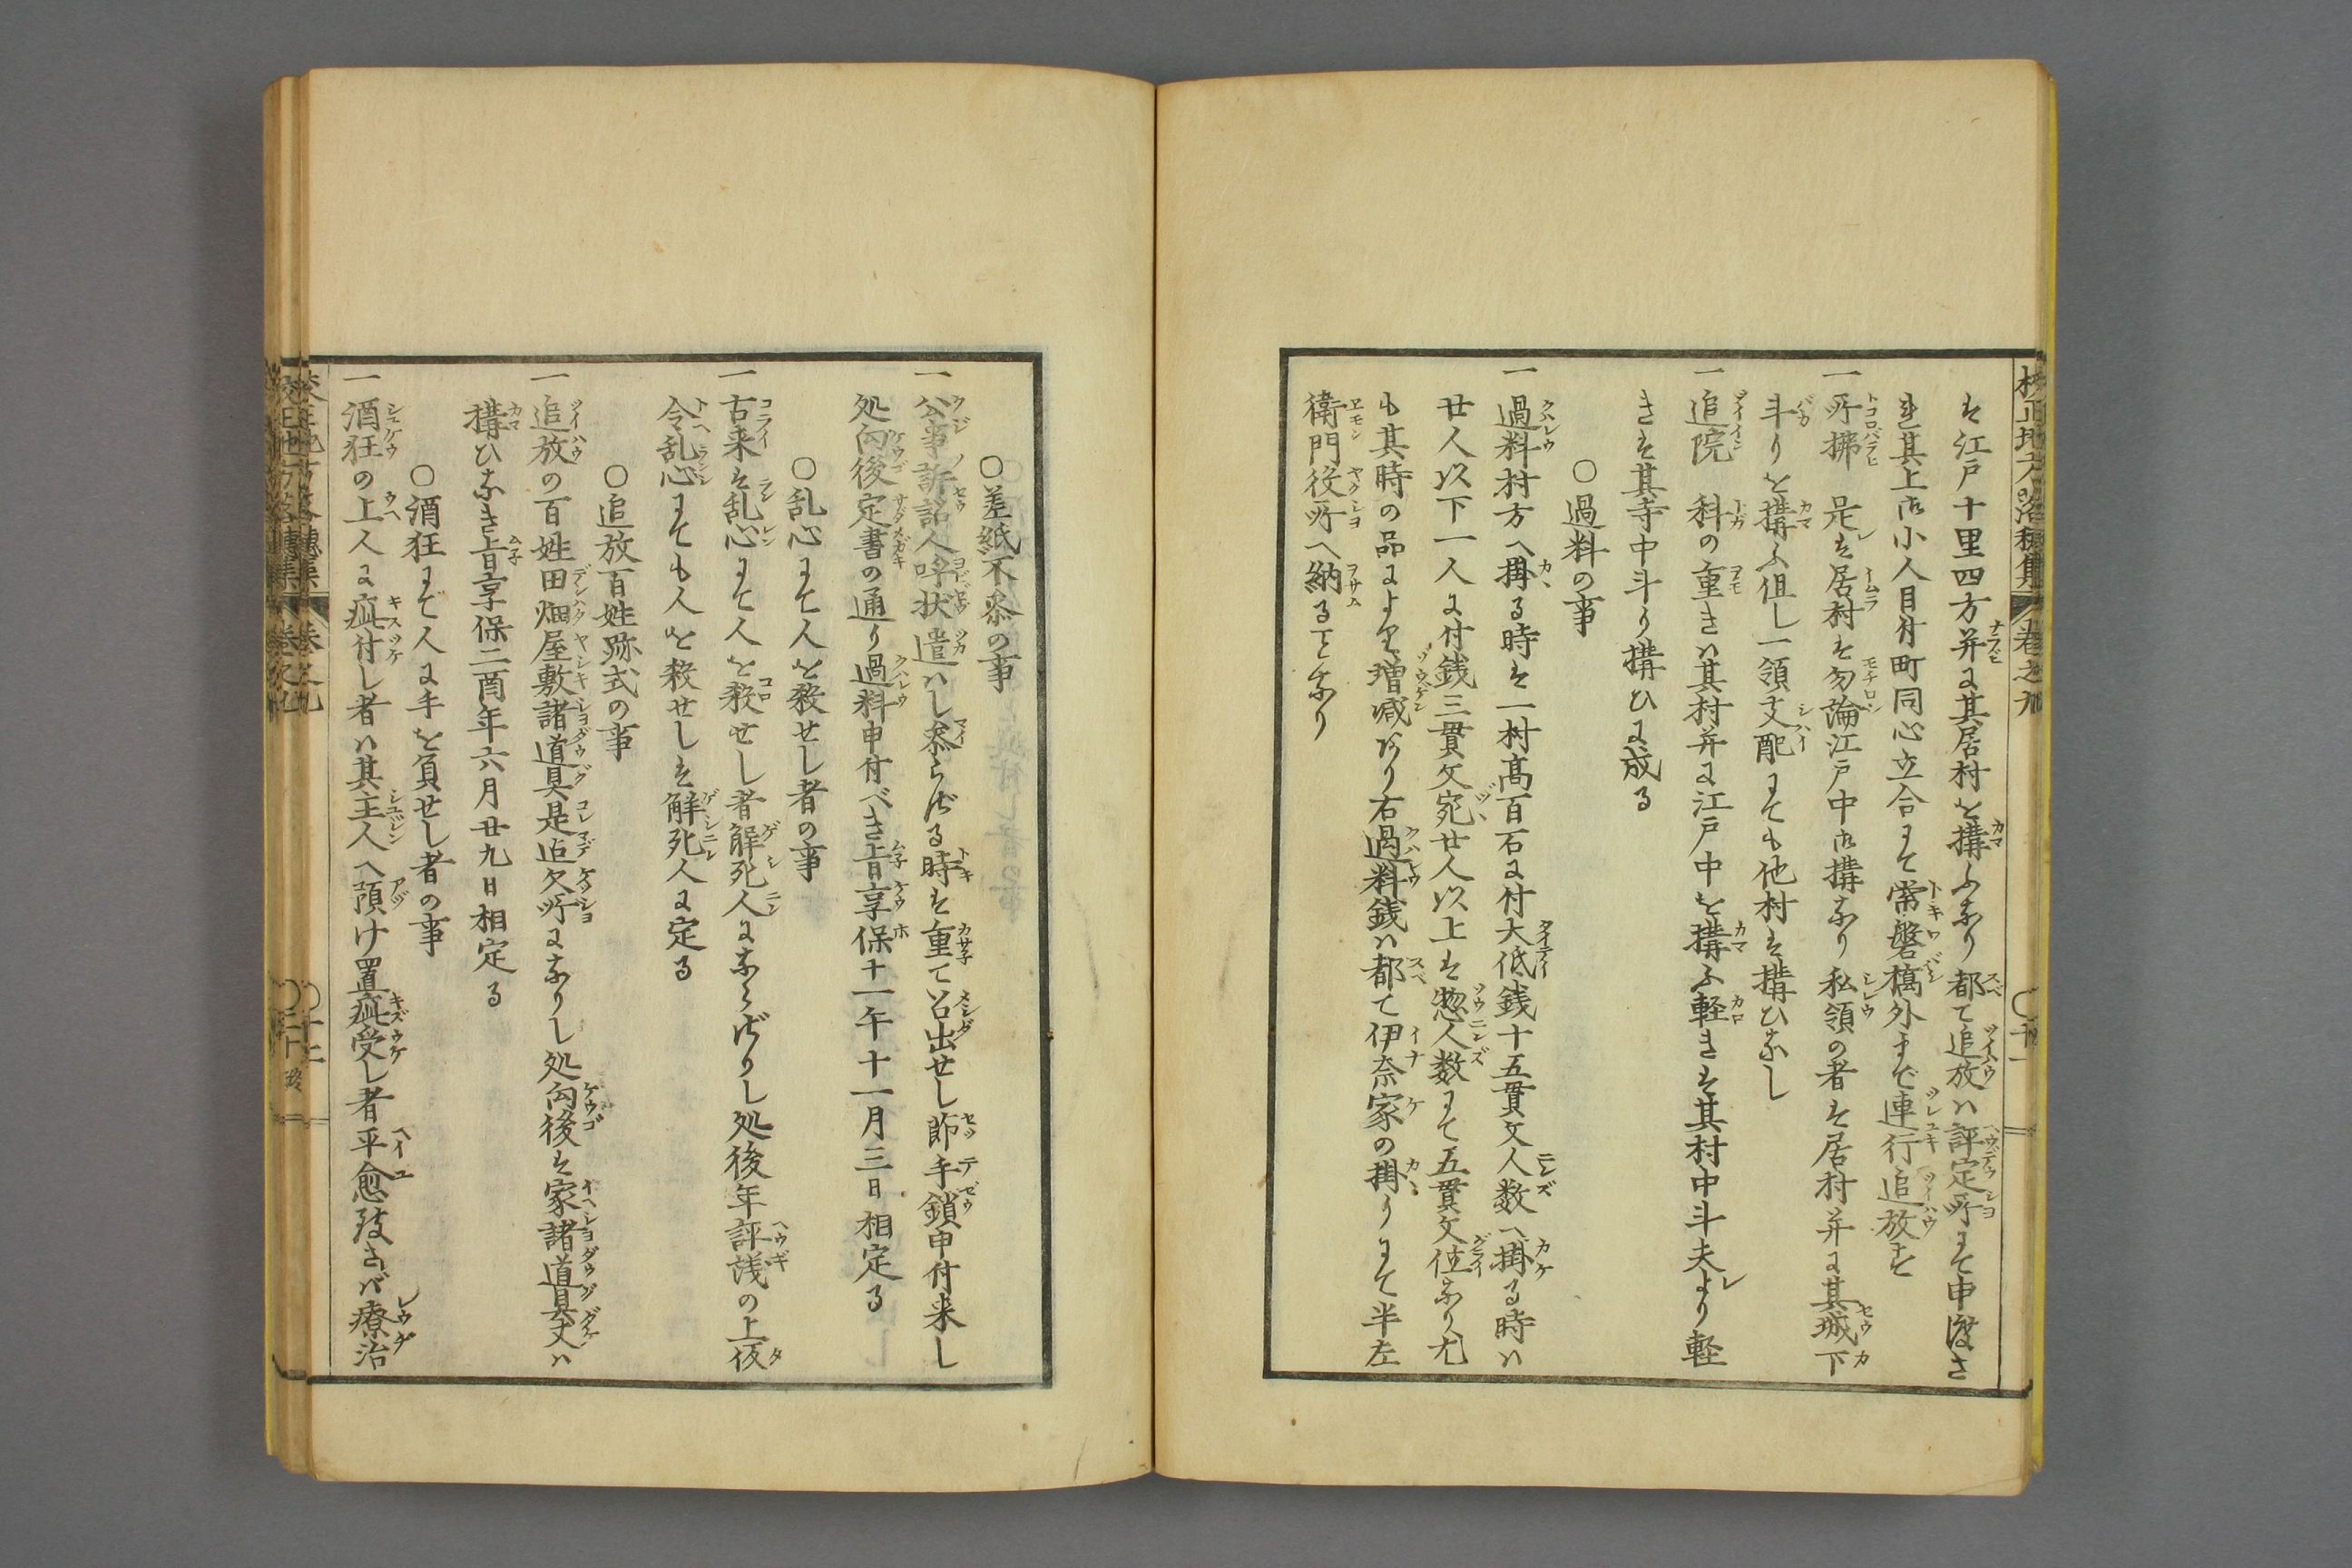 校正地方落穂集 巻之九
は江戸十里四方并に其居村を構ふなり都て追放ハ評定所にて申渡さ
れ其上御小人目付町同心立合にて常磐橋外まで連行追放す
一所拂 是は居村は勿論江戸中御構なり私領の者は居村并に其城下
斗りを構ふ但し一領支配にても他村は構ひなし
一追院 科の重きハ其村并に江戸中を構ふ軽きは其村中斗夫より軽
きは其寺中斗り構ひに成る
○過料の事
一過料村方へ掛る時は一村高百石に付大低銭十五貫文人数へ掛る時ハ
廿人以下一人に付銭三貫文宛廿人以上は惣人数にて五貫文位なり尤
も其時の品により増減あり右過料銭ハ都て伊奈家の掛りにて半左
衛門役所へ納るとなり
○差紙不参の事
一公事訴詔人呼状遣ハし参らざる時は重て召出せし節手鎖申付来し
処向後定書の通り過料申付べき旨享保十一午十一月三日相定る
○乱心にて人を殺せし者の事
一古来は乱心にて人を殺せし者解死人にならざりし処後年評議の上仮
令乱心にても人を殺せしは解死人に定る
○追放百姓跡式の事
一追放の百姓田畑屋敷諸道具是迄欠所になりし処向後は家諸道具丈ハ
構ひなき旨享保二酉年六月廿九日相定る
○酒狂にて人に手を負せし者の事
一酒狂の上人に疵付し者ハ其主人へ預け置疵受し者平愈致さバ療治